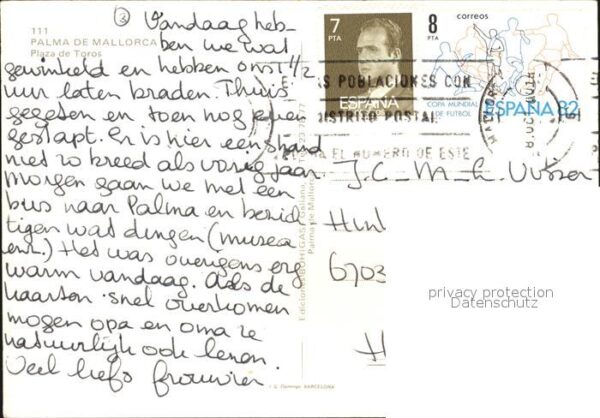 ③ Vandaag heb-
111
PALMA DE MALLORCA
Plaza de Toros
ben we wat
gewinkeld en hebben onst 1/2
uur laten braden. Thuis
gegeten en toen nog even
gestapt. Er is hier een strand
niet zo breed als vorig jaar.
Morgen gaan we met een
bus naar Palma en bezich
tigen wat dingen (musea
enz.) Het was overigens erg
warm vandaag. Als de
kaarten snel overkomen
mogen opa en oma ze
natuurlijk ook lenen.
Veel liefs
7
PTA
ESPAÑA
8
PTA
correos
COPA MUNDIAL
DE FUTBOL
ESPAÑA 82
POBLACIONES CON
DISTRITO POSTAL
EL NUMERO DE ESTE
J.C. M.
6703
privacy protection
Datenschutz
Palma de Mallorca
BARCELONA